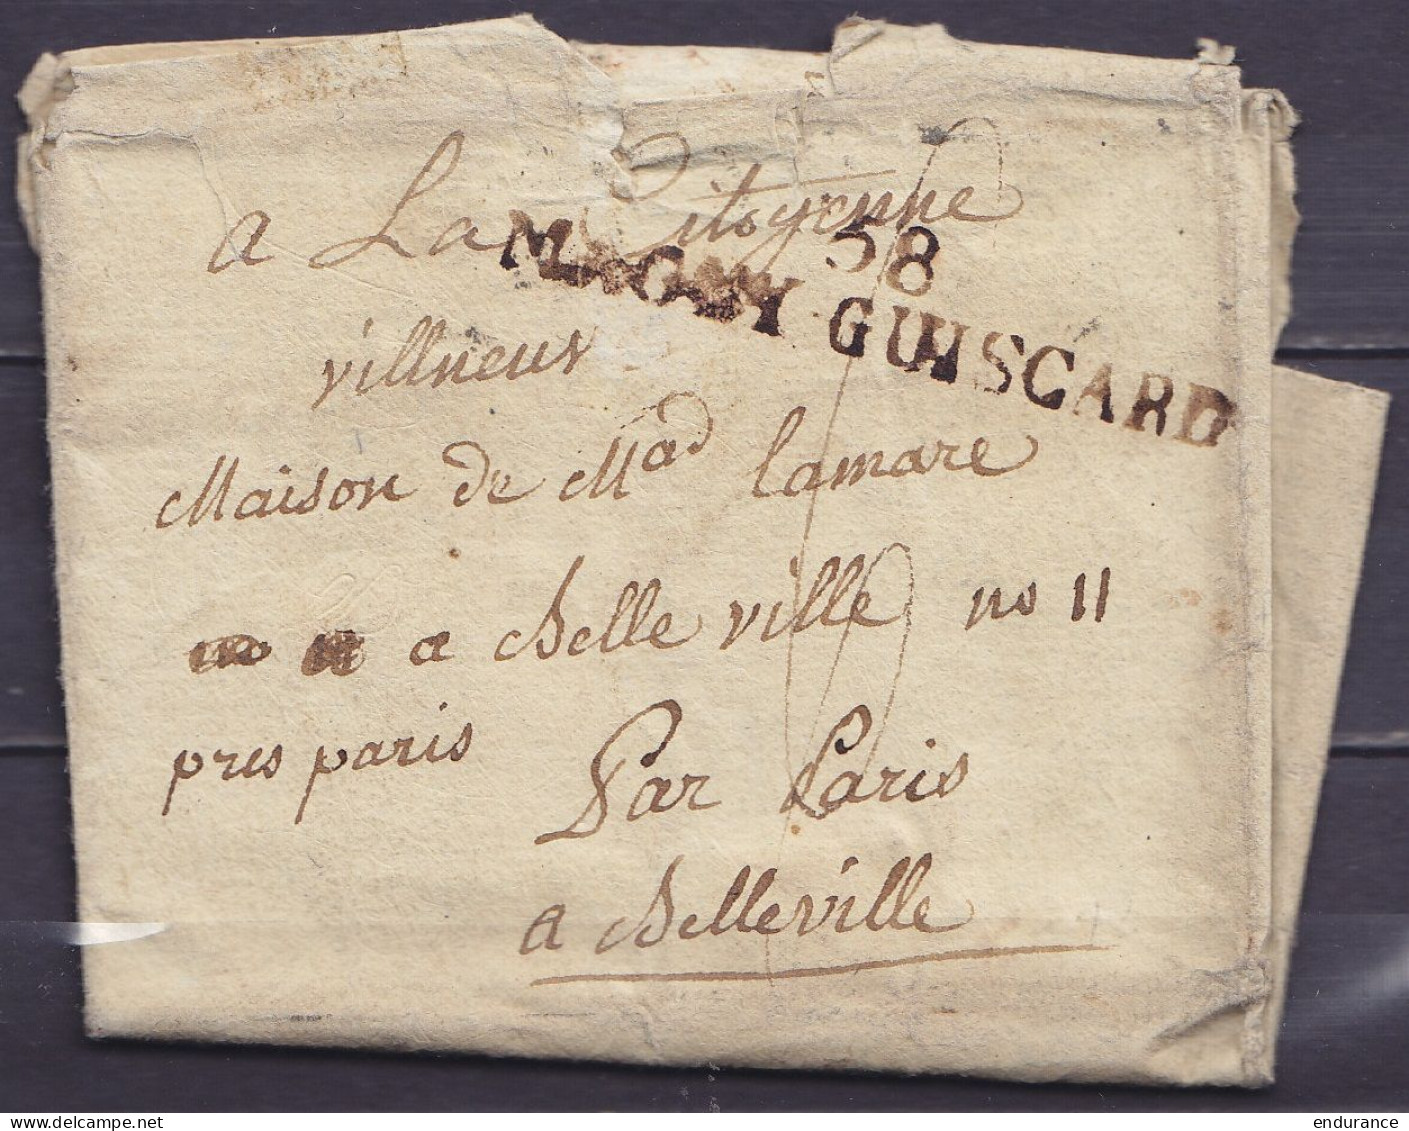 a La Citoyenne
58
MAGNY-GUISCARD
villneuv
Maison de Mad lamare
a Belleville no 11
pres paris
Par Paris
a Belleville
delcampe.net
endurance